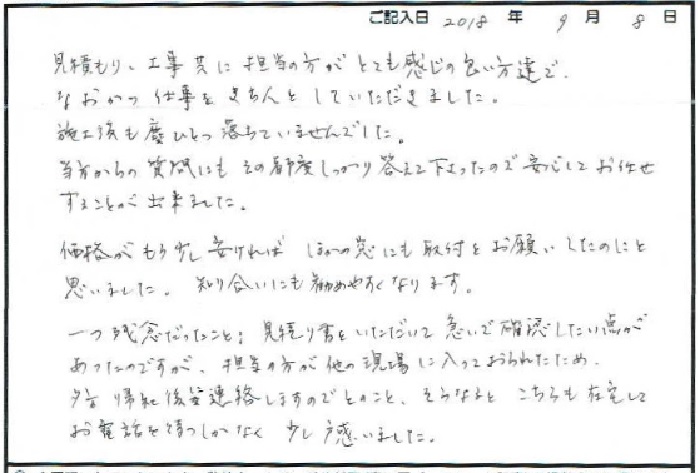 ご記入日 2018 年 9 月 8 日
見積もり、工事共に担当の方がとても感じの良い方達で、
なおかつ仕事をきちんとしていただきました。
施工後も塵ひとつ落ちていませんでした。
当方からの質問にもその都度しっかり答えて下さったので安心してお任せ
することが出来ました。
価格がもう少し安ければ ほかの窓にも取付をお願いしたのにと
思いました。 知り合いにも勧めやすくなります。
一つ残念だったこと; 見積り書をいただいて急いで確認したい点が
あったのですが、担当の方が他の現場に入っておられたため、
夕方帰社後連絡しますのでとのこと、そうなると こちらも在宅して
お電話を待つしかなく 少し戸惑いました。